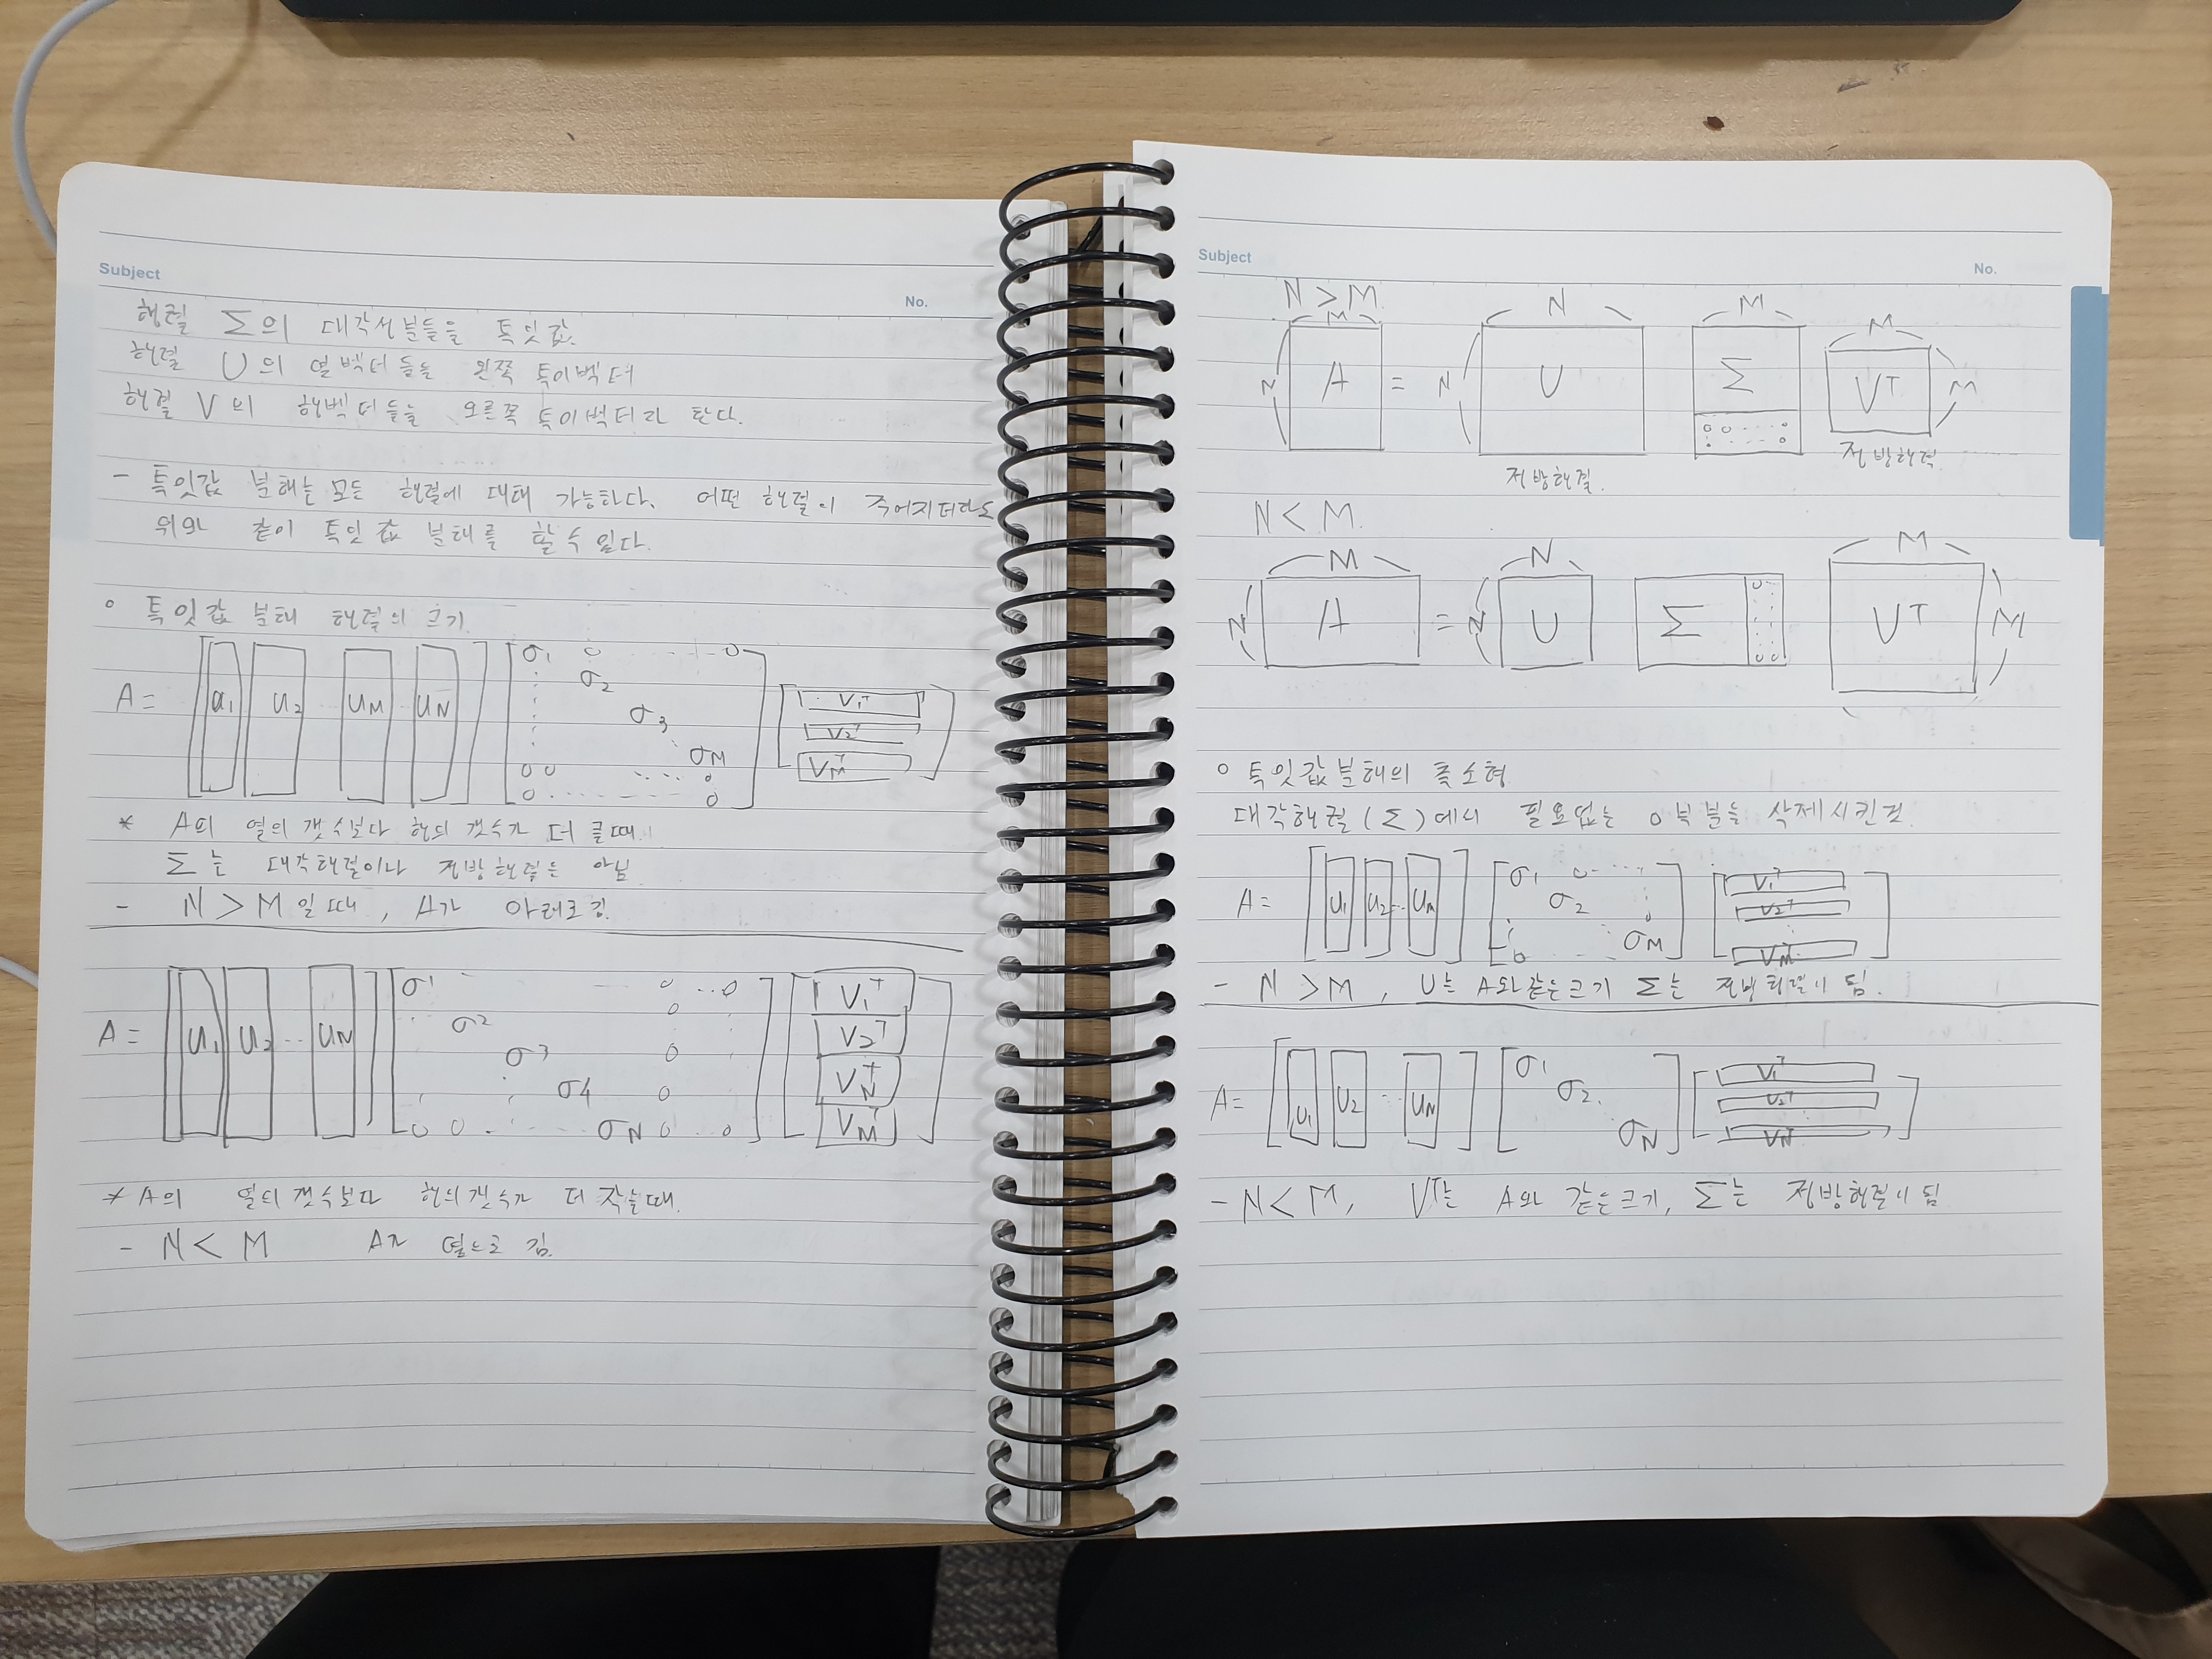 Subject
No.
행렬 Σ의 대각성분들을 특잇값.
행렬 U의 열벡터들을 왼쪽 특이벡터
행렬 V의 행벡터들을 오른쪽 특이벡터라 한다.
- 특잇값 분해는 모든 행렬에 대해 가능하다. 어떤 행렬이 주어지더라도
위와 같이 특잇값 분해를 할 수 있다.
○ 특잇값 분해 행렬의 크기
A = [ u₁ u₂ u_M u_N ] [ σ₁ 0 ... 0
σ₂
σ₃
σ_M
0 0 ... 0
0 ... 0 ] [ V₁ᵀ
V₂ᵀ
V_Mᵀ ]
* A의 열의 갯수보다 행의 갯수가 더 클때
Σ는 대각행렬이나 정방행렬은 아님
- N > M 일때, A가 아래로 김.
A = [ u₁ u₂ ... u_N ] [ σ₁ - 0 ... 0
σ₂ 0
σ₃ 0
σ₄ 0
0 0 ... σ_N 0 0 ] [ V₁ᵀ
V₂ᵀ
V_Nᵀ
V_Mᵀ ]
* A의 열의 갯수보다 행의 갯수가 더 작을때.
- N < M A가 옆으로 김.
Subject
No.
N > M.
M N M M
N A = N U Σ Vᵀ M
0 0 ... 0
정방행렬.
정방행렬
N < M.
M N M
N A = N U Σ Vᵀ M
○ 특잇값분해의 축소형
대각행렬(Σ)에서 필요없는 0부분을 삭제시킨것.
A = [ u₁ u₂ ... u_M ] [ σ₁ 0 ...
σ₂
0 σ_M ] [ V₁ᵀ
V₂ᵀ
V_Mᵀ ]
- N > M, U는 A와 같은크기 Σ는 정방행렬이 됨.
A = [ u₁ u₂ ... u_N ] [ σ₁
σ₂
σ_N ] [ V₁ᵀ
V₂ᵀ
V_Nᵀ ]
- N < M, Vᵀ는 A와 같은크기, Σ는 정방행렬이 됨